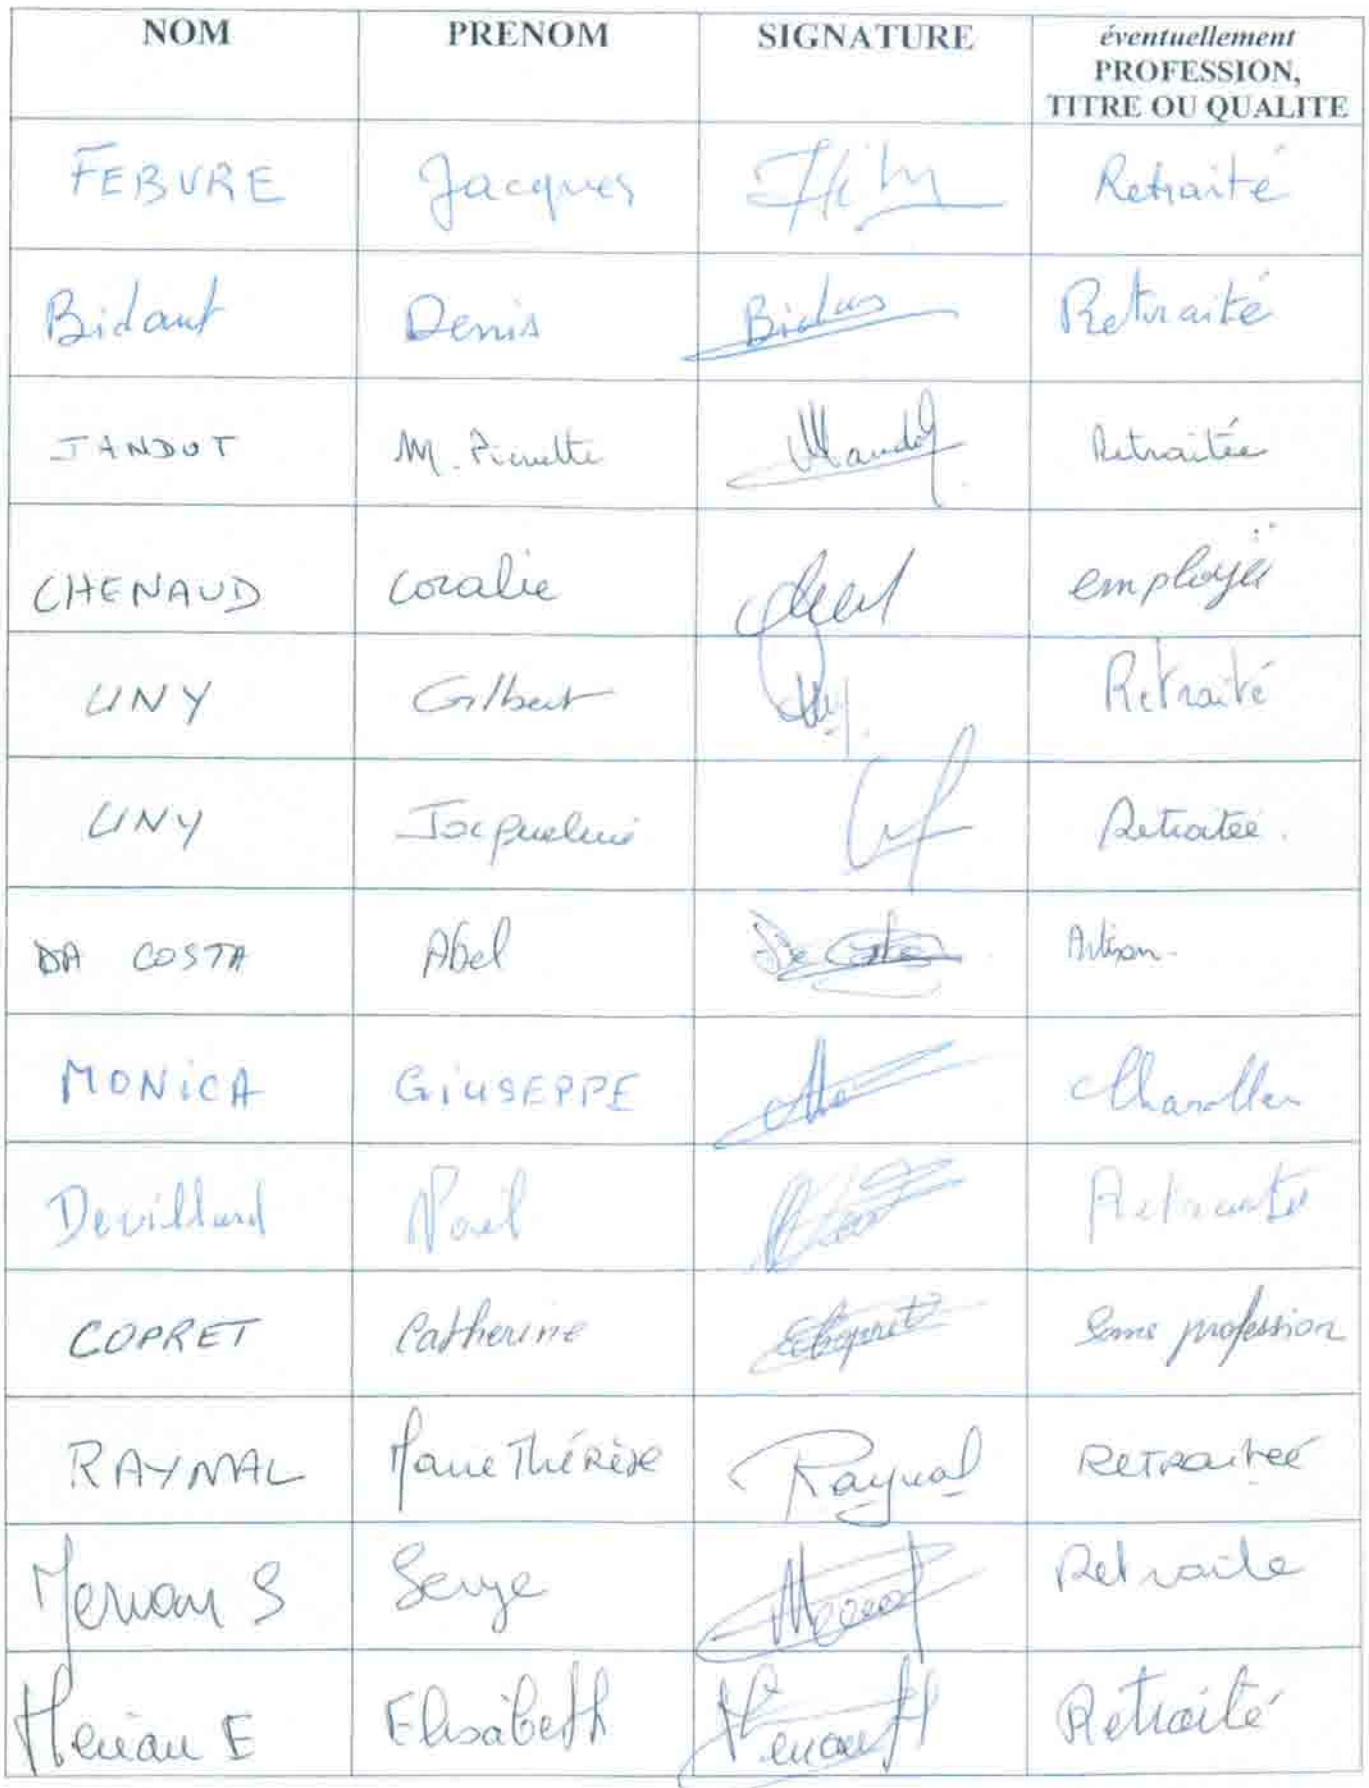 NOM PRENOM SIGNATURE éventuellement
PROFESSION,
TITRE OU QUALITE
FEBVRE Jacques Retraité
Bidaut Denis Retraité
JANDOT M. Pierrette Retraitée
CHENAUD Coralie employée
UNY Gilbert Retraité
UNY Jacqueline Retraitée.
DA COSTA Abel Da Costa Artisan
MONICA GIUSEPPE
Devillard Noël Retraité
COPRET Catherine Copret Sans profession
RAYNAL Marie Thérèse Raynal Retraitée
S Serge Retraité
E Elisabeth Retraité